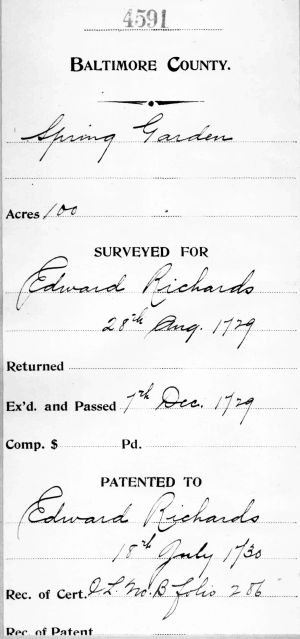 4591
BALTIMORE COUNTY.
Spring Garden
Acres 100
SURVEYED FOR
Edward Richards
28th Aug. 1729
Returned
Ex'd. and Passed 7th Dec. 1729
Comp. $ Pd.
PATENTED TO
Edward Richards
18th July 1730
Rec. of Cert. I L. No. B folio 206
Rec. of Patent